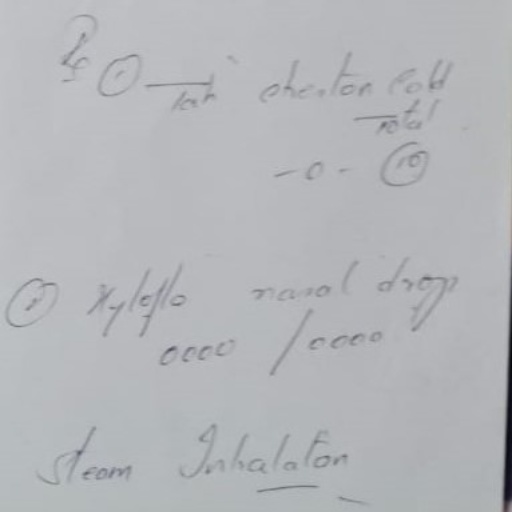 Rx ① — tab cheston cold
total
- 0 - ⑩
② Xyloflo nasal drop
0000 / 0000
Steam Inhalation